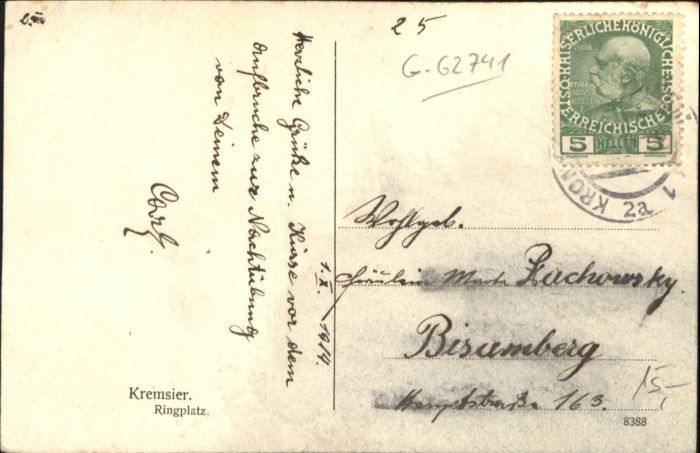 25
25
G-62741
KAISERLICHE KÖNIGLICHE ÖSTERREICHISCHE
1908
5 HELLER 5
KRO
2a
1
Herzliche Grüße u. Küsse vor dem
Aufbruche zur Nachtübung
von Deinem
Carl.
1. X. 1914.
Wohlgeb.
Fräulein Rachowsky
Bisamberg
Hauptstraße 163.
15,-
Kremsier.
Ringplatz.
8388